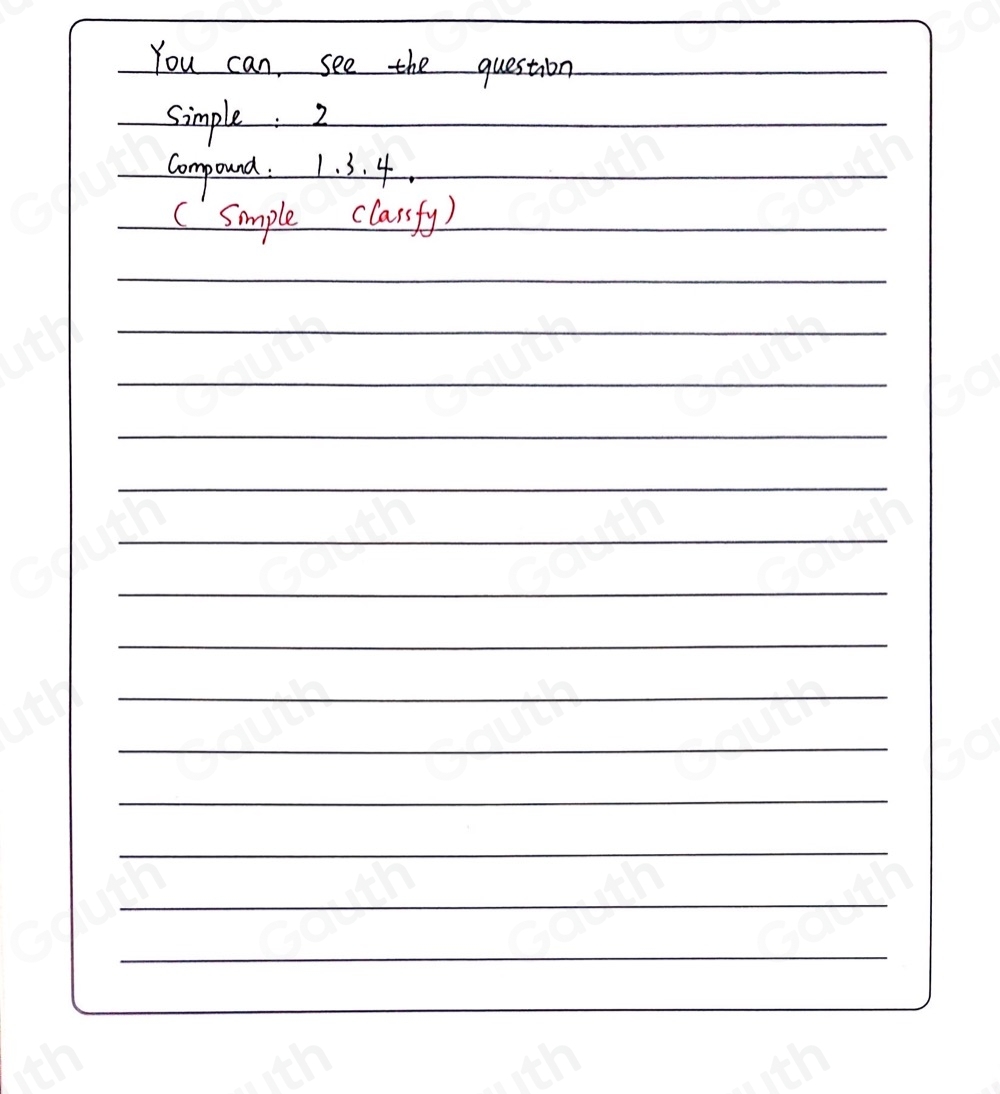 You can, see the question
Simple : 2
Compound : 1.3.4.
( Simple classfy)
Gauth